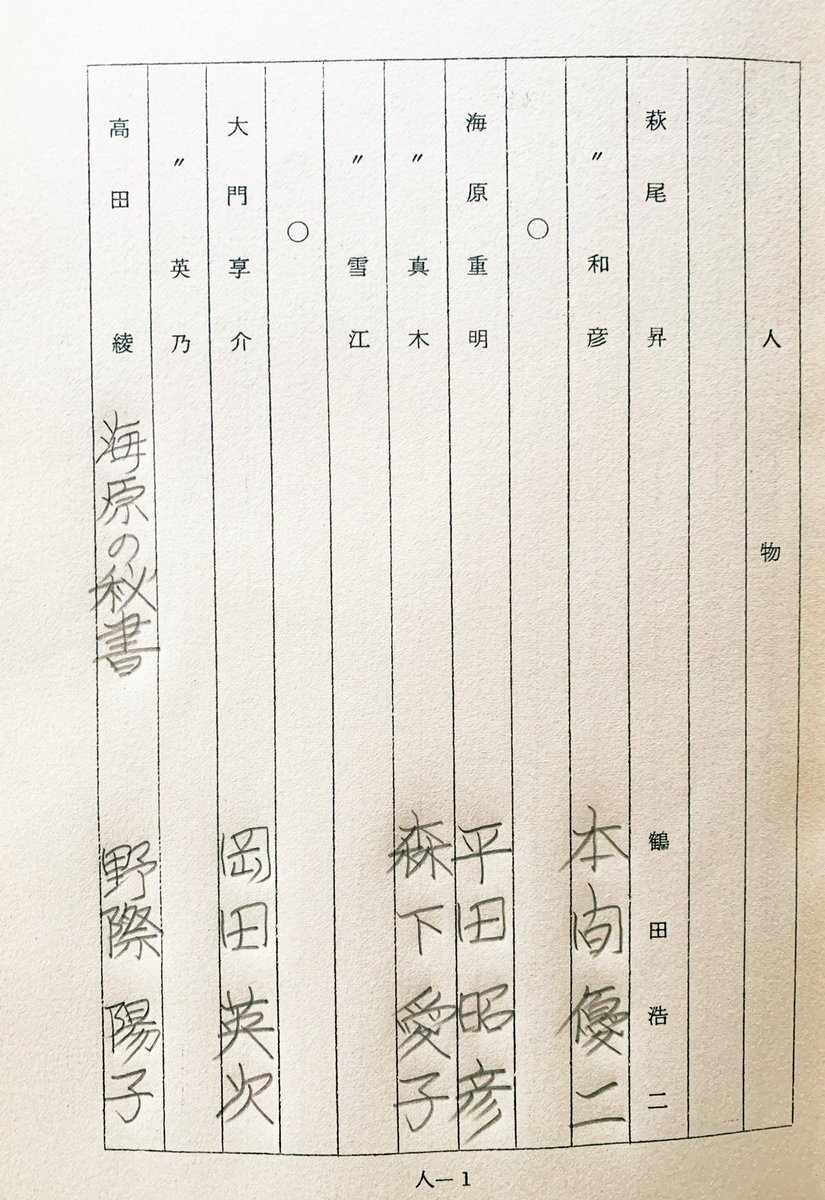 人物
萩尾昇 鶴田浩二
〃和彦 本間優二
○
海原重明 平田昭彦
〃真木 森下愛子
〃雪江
○
大門享介 岡田英次
〃英乃
高田綾 海原の秘書 野際陽子
人―1